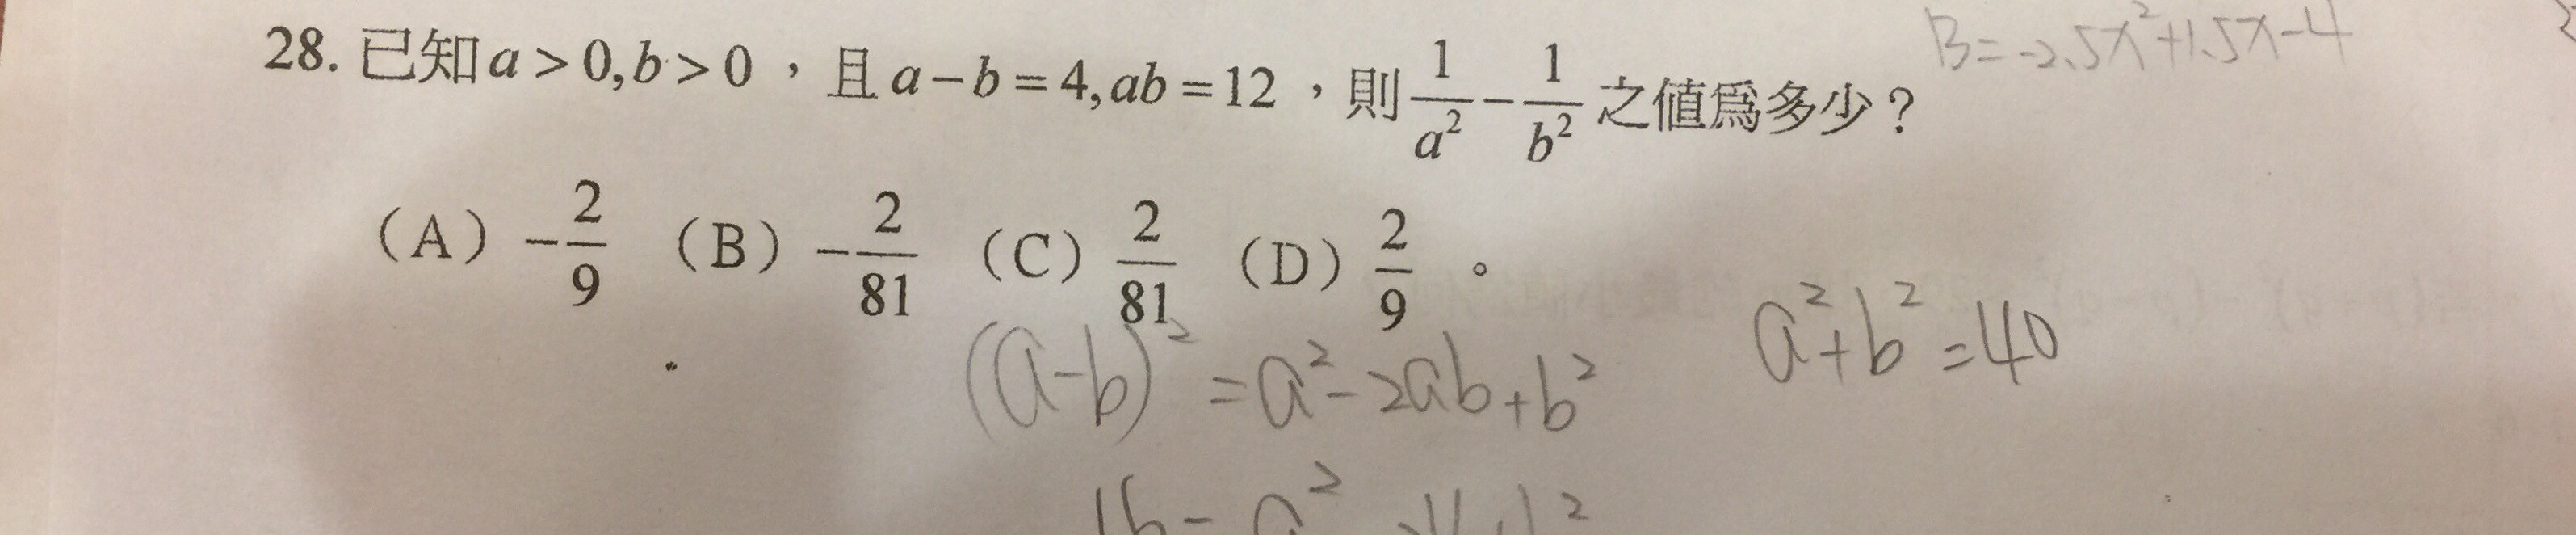 28. 已知a > 0, b > 0，且a − b = 4, ab = 12，則 1/a² − 1/b² 之值爲多少？
B = -2.5x² + 1.5x - 4
（A）−2/9 （B）−2/81 （C）2/81 （D）2/9 。
a² + b² = 40
(a-b)² = a² - 2ab + b²